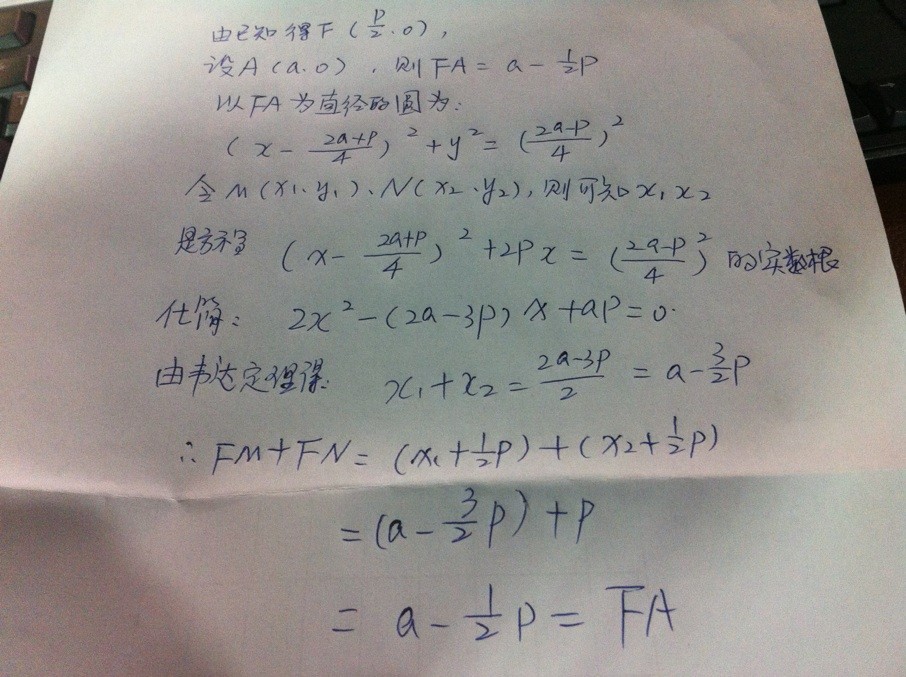 由已知得F(p/2,0),
设A(a.0),则FA=a-1/2p
以FA为直径的圆为:
(x-(2a+p)/4)²+y²=((2a-p)/4)²
令M(x₁,y₁)、N(x₂,y₂),则可知x₁x₂
是方程 (x-(2a+p)/4)²+2px=((2a-p)/4)² 的实数根
化简: 2x²-(2a-3p)x+ap=0.
由韦达定理得: x₁+x₂=(2a-3p)/2=a-3/2p
∴FM+FN=(x₁+1/2p)+(x₂+1/2p)
=(a-3/2p)+p
=a-1/2p=FA